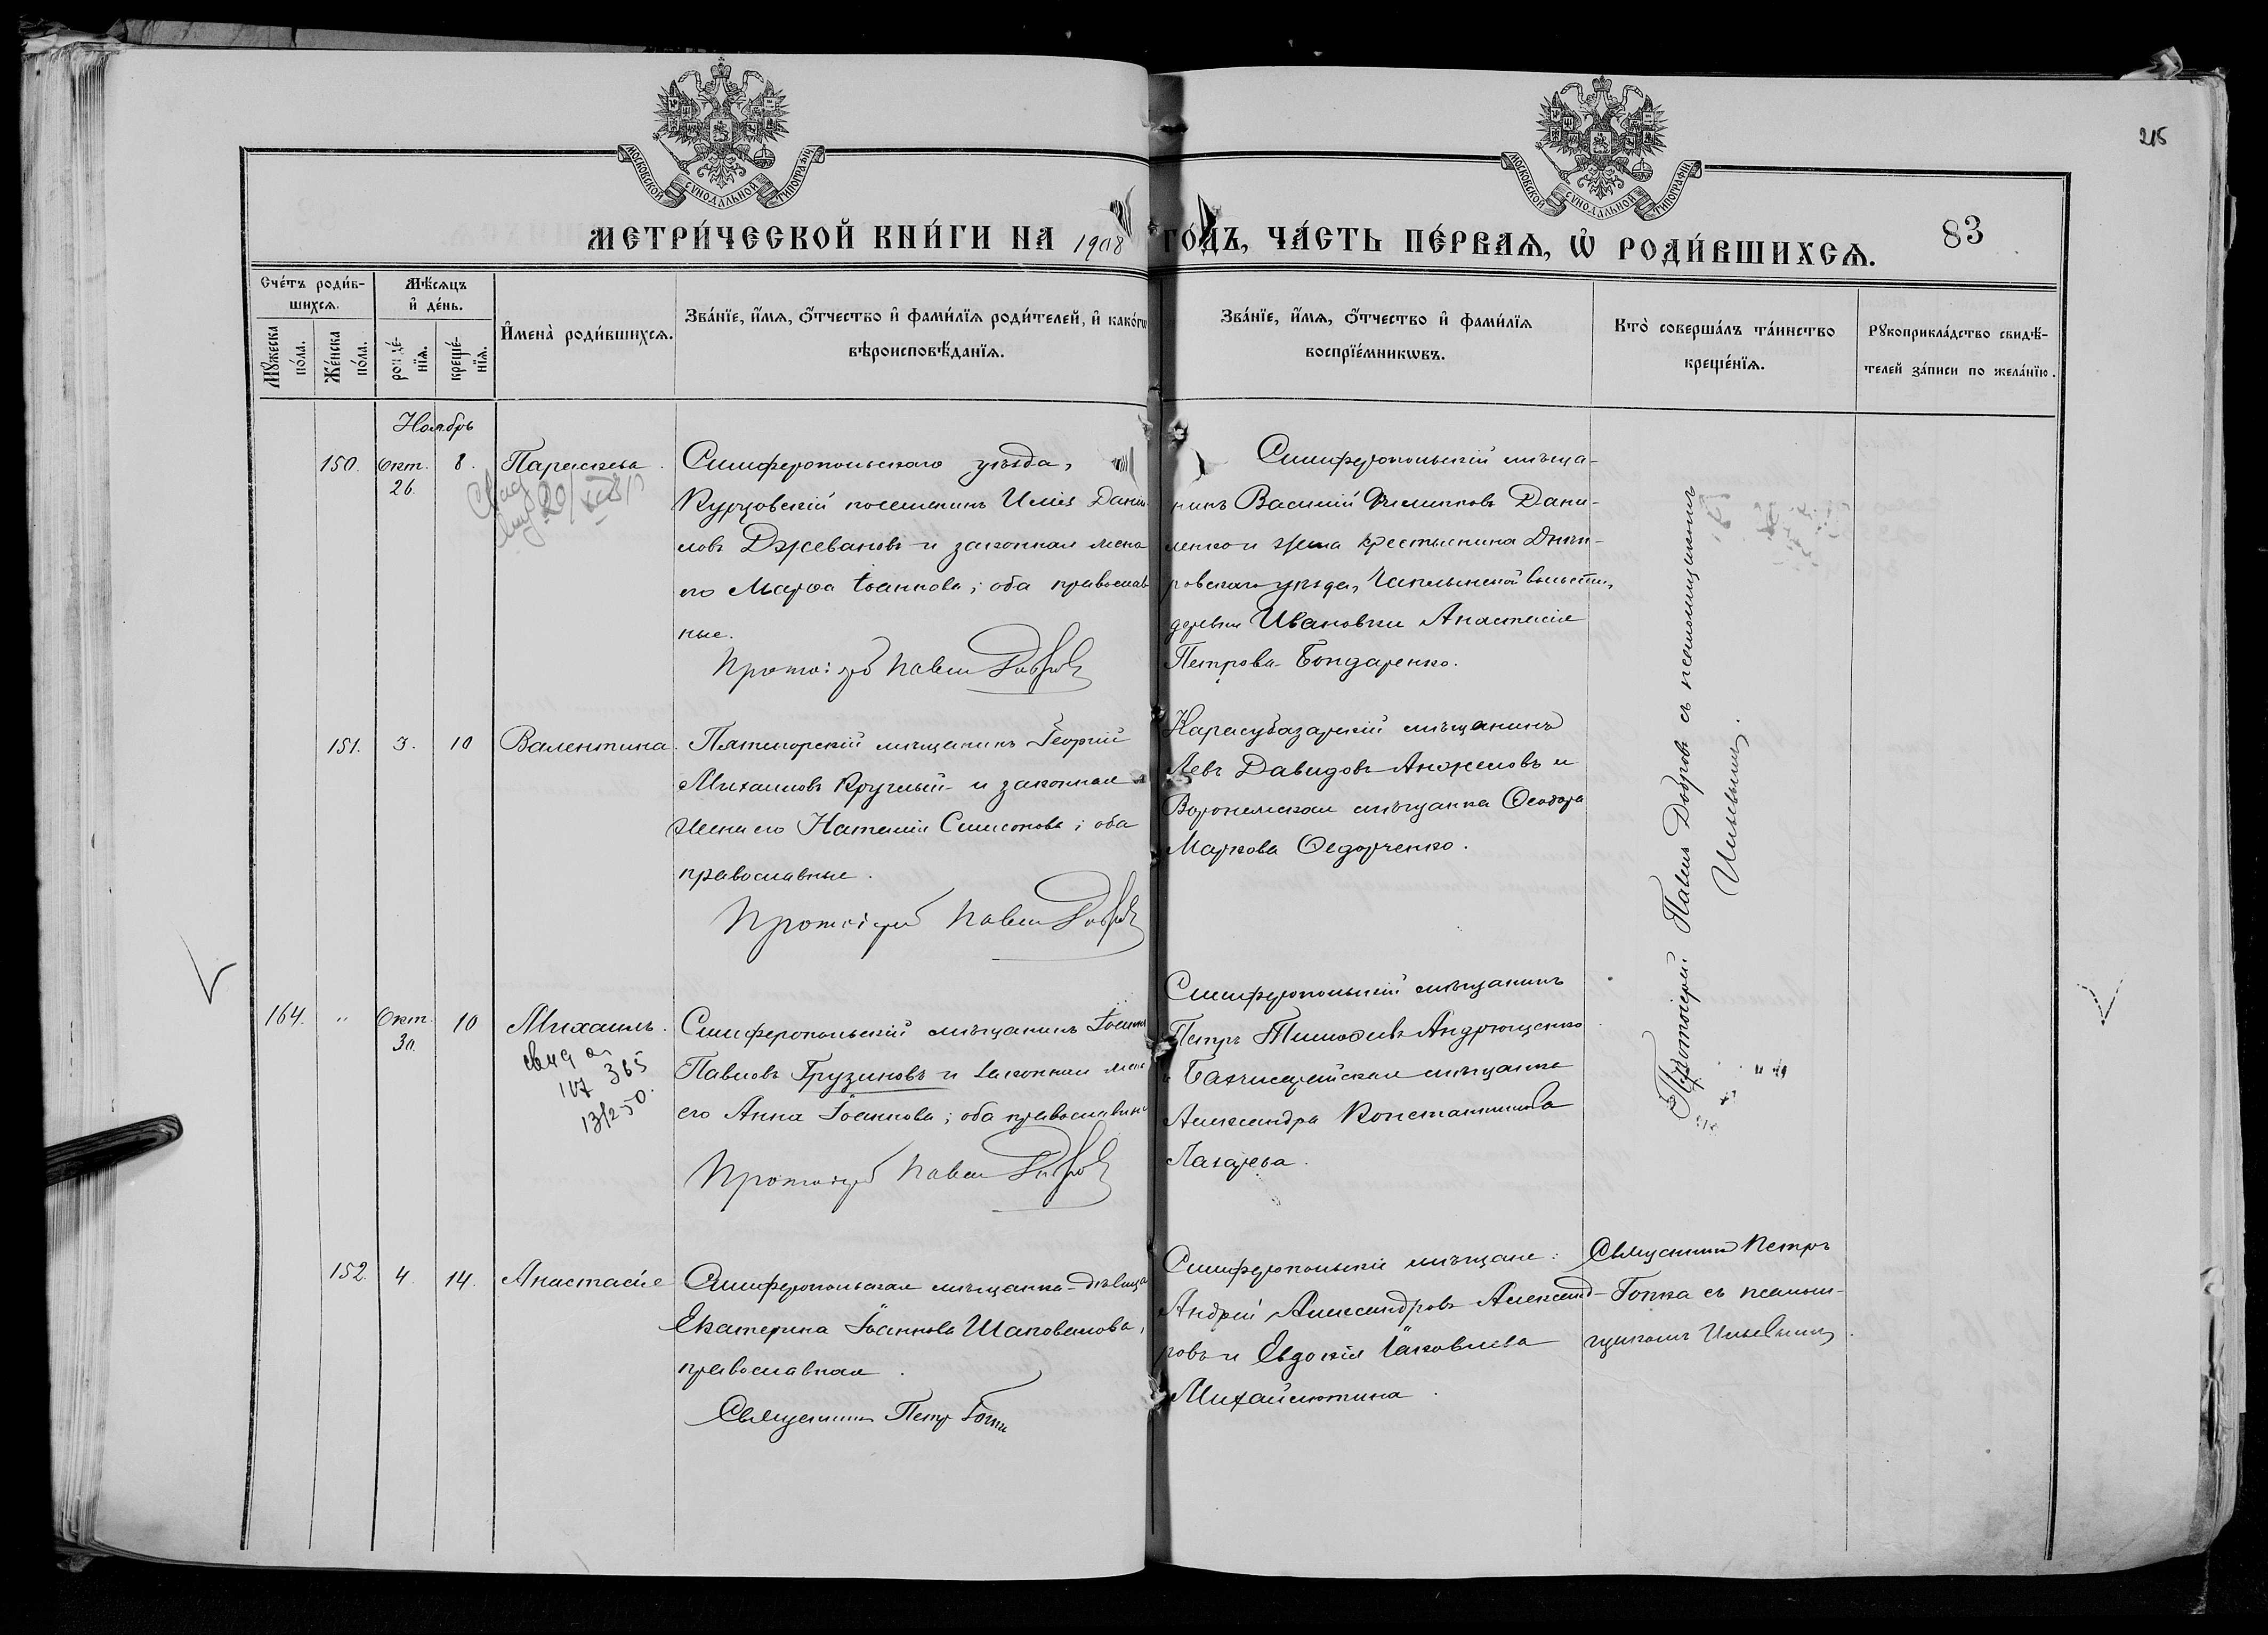 МОСКОВСКОЙ СѴНОДАЛЬНОЙ ТИПОГРАФІИ
МОСКОВСКОЙ СѴНОДАЛЬНОЙ ТИПОГРАФІИ
215
МЕТРИ́ЧЕСКОЙ КНИ́ГИ НА 1908 ГОДЪ, ЧА́СТЬ ПЕ́РВАѦ, Ѡ҆ РОДИ́ВШИХСѦ.
83
Сче́тъ роди́в-
шихсѧ.
Мꙋ́жеска по́ла.
Же́нска по́ла.
Мѣ́сѧцъ
и҆ де́нь.
рожде́-нїѧ.
креще́-нїѧ.
И҆мена̀ роди́вшихсѧ.
Зва́нїе, и҆́мѧ, ѻ҆́тчество и҆ фами́лїѧ роди́телей, и҆ како́гѡ
вѣроисповѣ́данїѧ.
Зва́нїе, и҆́мѧ, ѻ҆́тчество и҆ фами́лїѧ
воспрїе́мникѡвъ.
Кто̀ соверша́лъ та́инство
креще́нїѧ.
Рꙋкоприкла́дство свидѣ́-
телей за́писи по жела́нїю.
Ноябрь
150. Окт. 26. 8. Параскева.
Симферопольскаго уѣзда,
Курцовскій поселянинъ Илія Дани-
ловъ Джевановъ и законная жена
его Марѳа Іоаннова; оба православ
ные.
Протоіерей Павелъ Добровъ
Симферопольскій мѣща-
нинъ Василій Филипповъ Дани-
ленко и жена крестьянина Днѣп-
ровскаго уѣзда, Чаплынской волости,
деревни Ивановки Анастасія
Петрова Бондаренко.
151. 3. 10 Валентина.
Пятигорскій мѣщанинъ Георгій
Михаиловъ Круглый и законная
жена его Наталія Симонова; оба
православные.
Протоіерей Павелъ Добровъ
Карасубазарскій мѣщанинъ
Левъ Давидовъ Анжеловъ и
Воронежская мѣщанка Ѳеодора
Маркова Ѳедорченко.
Протоіерей Павелъ Добровъ съ псаломщикомъ
Ильевымъ.
164. " Окт. 30. 10 Михаилъ.
107 365
13/250.
Симферопольскій мѣщанинъ Іоаннъ
Павловъ Грузиновъ и законная жена
его Анна Іоаннова; оба православные
Протоіерей Павелъ Добровъ
Симферопольскій мѣщанинъ
Петръ Тимоѳеевъ Андрющенко
и Бахчисарайская мѣщанка
Александра Константинова
Лазарева.
152. 4. 14. Анастасія
Симферопольская мѣщанка-дѣвица
Екатерина Іоаннова Шаповалова,
православная.
Священникъ Петръ Гопка
Симферопольскіе мѣщане:
Андрей Александровъ Александ-
ровъ и Евдокія Іаковлева
Михайлютина.
Священникъ Петръ
Гопка съ псалом-
щикомъ Ильевымъ.